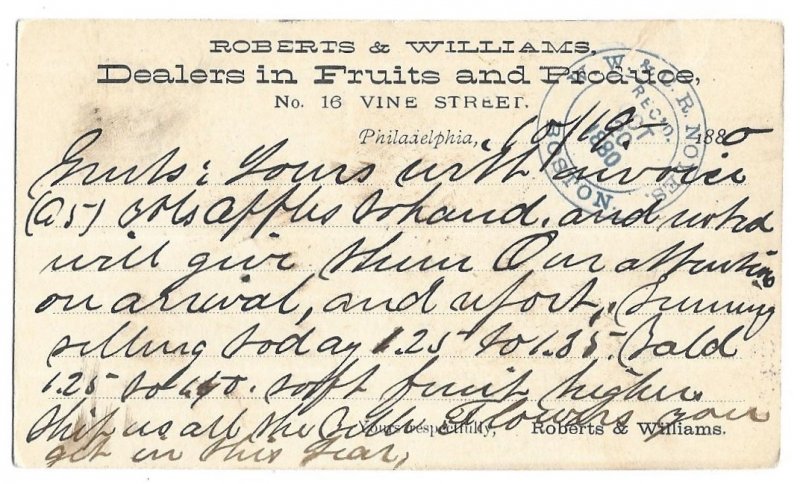 ROBERTS & WILLIAMS,
Dealers in Fruits and Produce,
No. 16 VINE STREET.
Philadelphia, 10/19 1880
W. & C. R. NOYES.
REC'D.
OCT
1880
BOSTON.
Gents; Yours with invoice
(25) Bbls apples to hand, and noted
will give them Our attention
on arrival, and report,
selling today 1.25 to 1.35. Bald
1.25 to 1.40. soft fruit higher
ship us all the Bell Flowers you
Yours respectfully, Roberts & Williams.
get in this